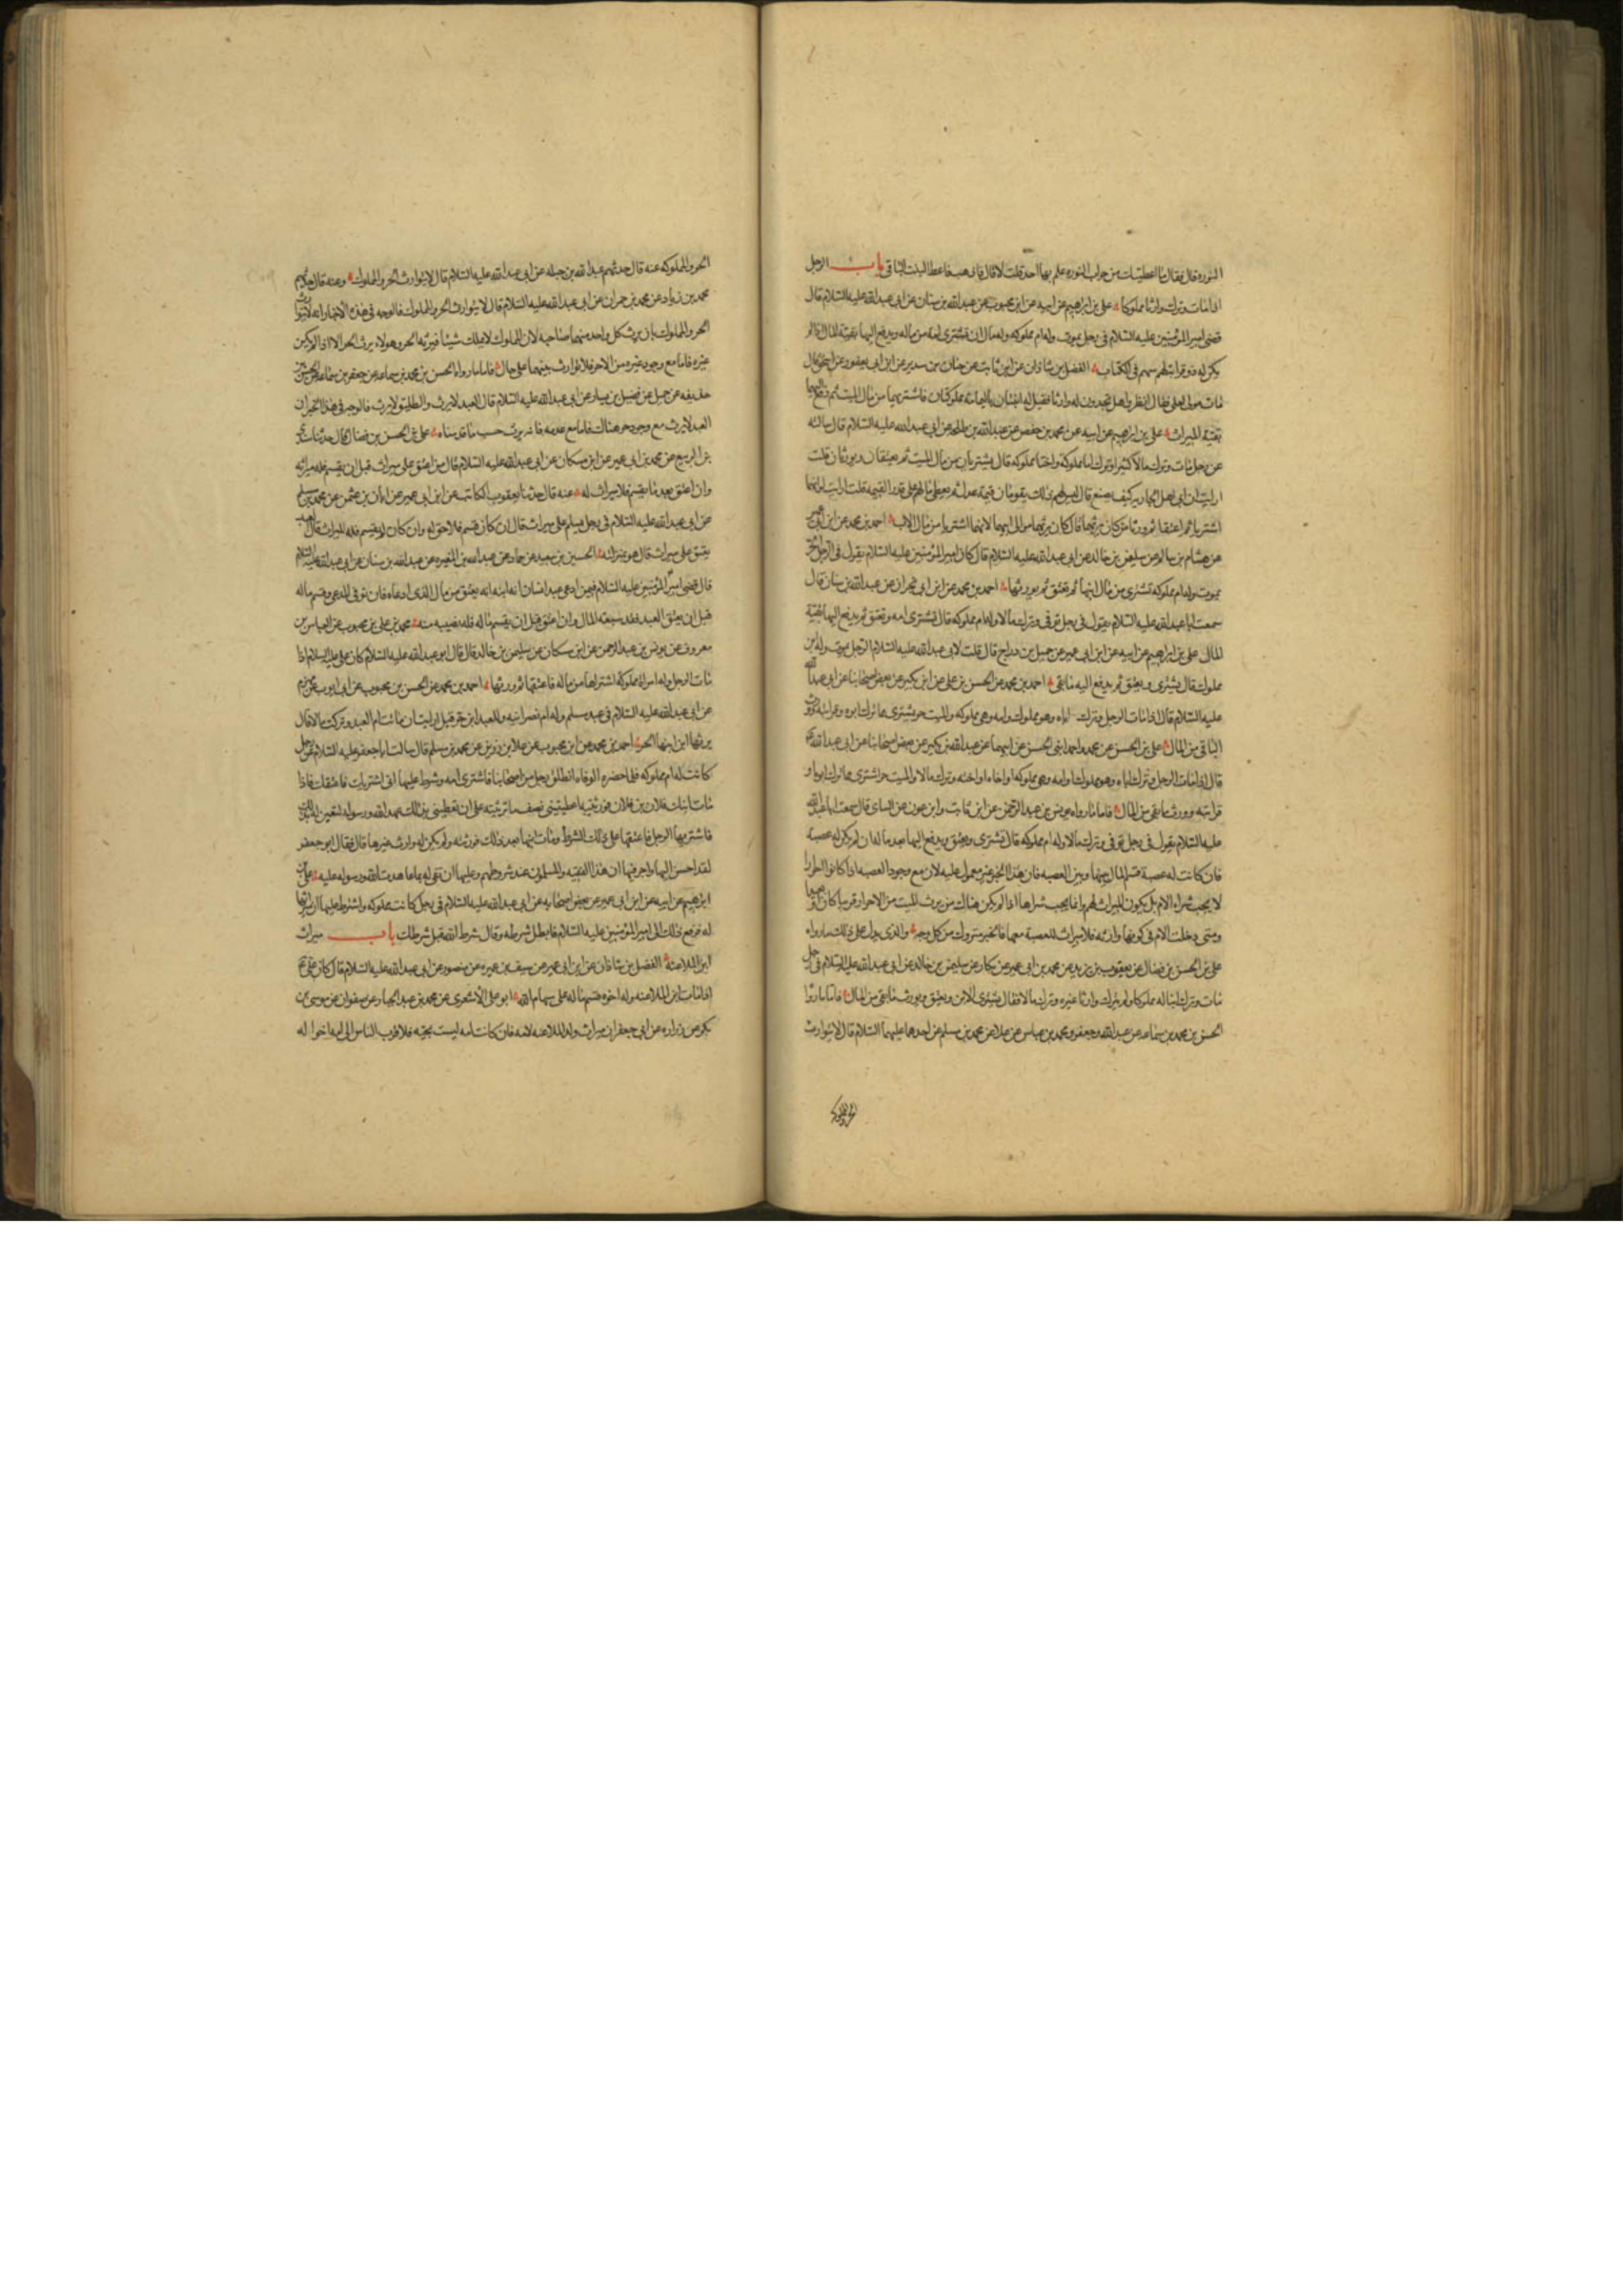 النوره قال فقال ما اعطيتك من جراب النوره علم بها احد قلت لا قال فاذهب فاعط البنت الباقى باب الرجل
اذا مات وترك وارثا مملوكا على بن ابراهيم عن ابيه عن ابن محبوب عن عبد الله بن سنان عن ابى عبد الله عليه السلام قال
قضى امير المؤمنين عليه السلام فى رجل يموت وله ام مملوكه وله مال ان تشترى امه من ماله ويدفع اليها بقية المال اذا لم
يكن له ذو قرابة لهم سهم فى الكتاب الفضل بن شاذان عن ابن ثابت عن حنان بن سدير عن ابن ابى يعفور عن اسحق قال
مات مولى لعلى فقال انظروا هل تجدون له وارثا فقيل له ابنتان باليمامه مملوكتان فاشتريهما من مال الميت ثم دفع اليهما
بقية الميراث على بن ابراهيم عن ابيه عن محمد بن حفص عن عبد الله بن طلحه عن ابى عبد الله عليه السلام قال سالته
عن رجل مات وترك مالا كثيرا وترك اما مملوكة واختا مملوكه قال يشتريان من مال الميت ثم يعتقان ويورثان قلت
ارايت ان ابى اهل الجاريه كيف يصنع قال ليس لهم ذلك يقومان قيمة عدل ثم يعطى مالهم على قدر القيمه قلت ارايت لو انهما
اشتريا ثم اعتقا ثم ورثا من كان يرثهما قال كان يرثهما موالى ابيهما لانهما اشتريا من مال الاب احمد بن محمد عن ابن ابى عمير
عن هشام بن سالم عن سليمن بن خالد عن ابى عبد الله عليه السلام قال كان امير المؤمنين عليه السلام يقول فى الرجل الحر
يموت وله ام مملوكه تشترى من مال ابنها ثم تعتق ثم يورثها احمد بن محمد عن ابن ابى نجران عن عبد الله بن سنان قال
سمعت ابا عبد الله عليه السلام يقول فى رجل توفى وترك مالا وله ام مملوكه قال تشترى امه وتعتق ثم يدفع اليها بقية
المال على بن ابراهيم عن ابيه عن ابن ابى عمير عن جميل بن دراج قال قلت لابى عبد الله عليه السلام الرجل يموت وله ابن
مملوك قال يشترى ويعتق ثم يدفع اليه ما بقى احمد بن محمد عن الحسن بن على عن ابن بكير عن بعض اصحابنا عن ابى عبد الله
عليه السلام قال اذا مات الرجل وترك اباه وهو مملوك وامه وهى مملوكه والميت حر يشترى مما ترك ابوه وقرابته وورث
الباقى من المال على بن الحسن عن محمد واحمد ابنى الحسن عن ابيهما عن عبد الله بن بكير عن بعض اصحابنا عن ابى عبد الله
قال اذا مات الرجل وترك اباه وهو مملوك او امه وهى مملوكه او اخاه او اخته وترك مالا والميت حر اشترى مما ترك ابوه او
قرابته وورث ما بقى من المال فاما ما رواه يونس بن عبد الرحمن عن ابن ثابت وابن عون عن السائى قال سمعت ابا عبد الله
عليه السلام يقول فى رجل توفى وترك مالا وله ام مملوكه قال تشترى وتعتق ويدفع اليها بعد ماله ان لم يكن له عصبه
فان كانت له عصبة قسم المال بينها وبين العصبه فان هذا الخبر غير معمول عليه لان مع وجود العصبه اذا كانوا احرارا
لا يجب شراء الام بل يكون الميراث لهم وانما يجب شراها اذا لم يكن هناك من يرث الميت من الاحرار قريبا كان او بعيدا
ومتى دخلت الام فى كونها وارثه فلا ميراث للعصبة معها فالخبر متروك من كل وجه والذى يدل على ذلك ما رواه
على بن الحسن بن فضال عن يعقوب بن يزيد عن محمد بن ابى عمير عن بكار عن سليمن بن خالد عن ابى عبد الله عليه السلام فى رجل
مات وترك ابنا له مملوكا ولم يترك وارثا غيره وترك مالا فقال يشترى الابن ويعتق ويورث ما بقى من المال فاما ما رواه
الحسن بن محمد بن سماعه عن عبد الله وجعفر ومحمد بن عباس عن علا عن محمد بن مسلم عن احدهما عليهما السلام قال لا يتوارث
الحر والمملوكه
الحر والمملوكه عنه قال حدثهم عبد الله بن جبله عن ابى عبد الله عليه السلام قال لا يتوارث الحر والمملوك وعنه قال حدثهم
محمد بن زياد عن محمد بن حمران عن ابى عبد الله عليه السلام قال لا يتوارث الحر والمملوك فالوجه فى هذه الاخبار انه لا يتوارث
الحر والمملوك بان يرث كل واحد منهما صاحبه لان المملوك لا يملك شيئا فيرثه الحر وهو لا يرث الحر الا اذا لم يكن
غيره فاما مع وجود غيره من الاحرار فلا توارث بينهما على حال فاما ما رواه الحسن بن محمد بن سماعه عن جعفر بن سماعه عن الحسن بن
حذيفه عن جميل عن فضيل بن يسار عن ابى عبد الله عليه السلام قال العبد لا يرث والطليق لا يرث فالوجه فى هذا الخبر ان
العبد لا يرث مع وجود حر هناك فاما مع عدمه فانه يرث حسب ما قدمناه على بن الحسن بن فضال قال حدثنا
بن الربيع عن محمد بن ابى عمير عن ابن مسكان عن ابى عبد الله عليه السلام قال من اعتق على ميراث قبل ان يقسم فله ميراثه
وان اعتق بعد ما يقسم فلا ميراث له عنه قال حدثنا يعقوب الكاتب عن ابن ابى عمير عن ابان بن عثمن عن محمد بن مسلم
عن ابى عبد الله عليه السلام فى رجل يسلم على ميراث قال ان كان قسم فلا حق له وان كان لم يقسم فله الميراث قال العبد
يعتق على ميراث قال هو بمنزلته الحسين بن سعيد عن حماد عن عبد الله بن المغيره عن عبد الله بن سنان عن ابى عبد الله عليه السلام
قال قضى امير المؤمنين عليه السلام فيمن ادعى عبد انسان انه ابنه انه يعتق من مال الذى ادعاه فان توفى المدعى وقسم ماله
قبل ان يعتق العبد فقد سبقه المال وان اعتق قبل ان يقسم ماله فله نصيبه منه محمد بن على بن محبوب عن العباس بن
معروف عن يونس بن عبد الرحمن عن ابن مسكان عن سليمن بن خالد قال قال ابو عبد الله عليه السلام كان على عليه السلام اذا
مات الرجل وله امراة مملوكة اشتراها من ماله فاعتقها ثم ورثها احمد بن محمد عن الحسن بن محبوب عن ابى ايوب عن مهزم
عن ابى عبد الله عليه السلام فى عبد مسلم وله ام نصرانيه وللعبد ابن حر قيل ارايت ان ماتت ام العبد وتركت مالا قال
يرثها ابن ابنها الحر احمد بن محمد عن ابن محبوب عن علا بن رزين عن محمد بن مسلم قال سالت ابا جعفر عليه السلام عن رجل
كانت له ام مملوكه فلما حضره الوفاه انطلق رجل من اصحابنا فاشترى امه وشرط عليها انى اشتريك فاعتقك فاذا
مات ابنك فلان بن فلان فورثتيه اعطيتينى نصف ما ترثينه على ان تعطينى بذلك عهد الله ورسوله لتفين لى بذلك
فاشتريها الرجل فاعتقها على ذلك الشرط ومات ابنها بعد ذلك فورثته ولم يكن له وارث غيرها قال فقال ابو جعفر
لقد احسن اليها واجر فيها ان هذا الفقيه والمسلمون عند شروطهم وعليها ان تفى له بما عاهدت الله ورسوله عليه على بن
ابراهيم عن ابيه عن ابن ابى عمير عن بعض اصحابه عن ابى عبد الله عليه السلام فى رجل كاتب مملوكه واشترط عليها ان ميراثها
له فرفع ذلك الى امير المؤمنين عليه السلام فابطل شرطه وقال شرط الله قبل شرطك باب ميراث
ابن الملاعنة الفضل بن شاذان عن ابن ابى عمير عن سيف بن عميره عن منصور عن ابى عبد الله عليه السلام قال كان على
اذا مات ابن الملاعنه وله اخوه قسم ماله على سهام الله ابو على الاشعرى عن محمد بن عبد الجبار عن صفوان عن موسى بن
بكر عن زراره عن ابى جعفر ان ميراث ولد الملاعنه لامه فان كانت امه ليست بحيه فلاقرب الناس الى امه اخواله